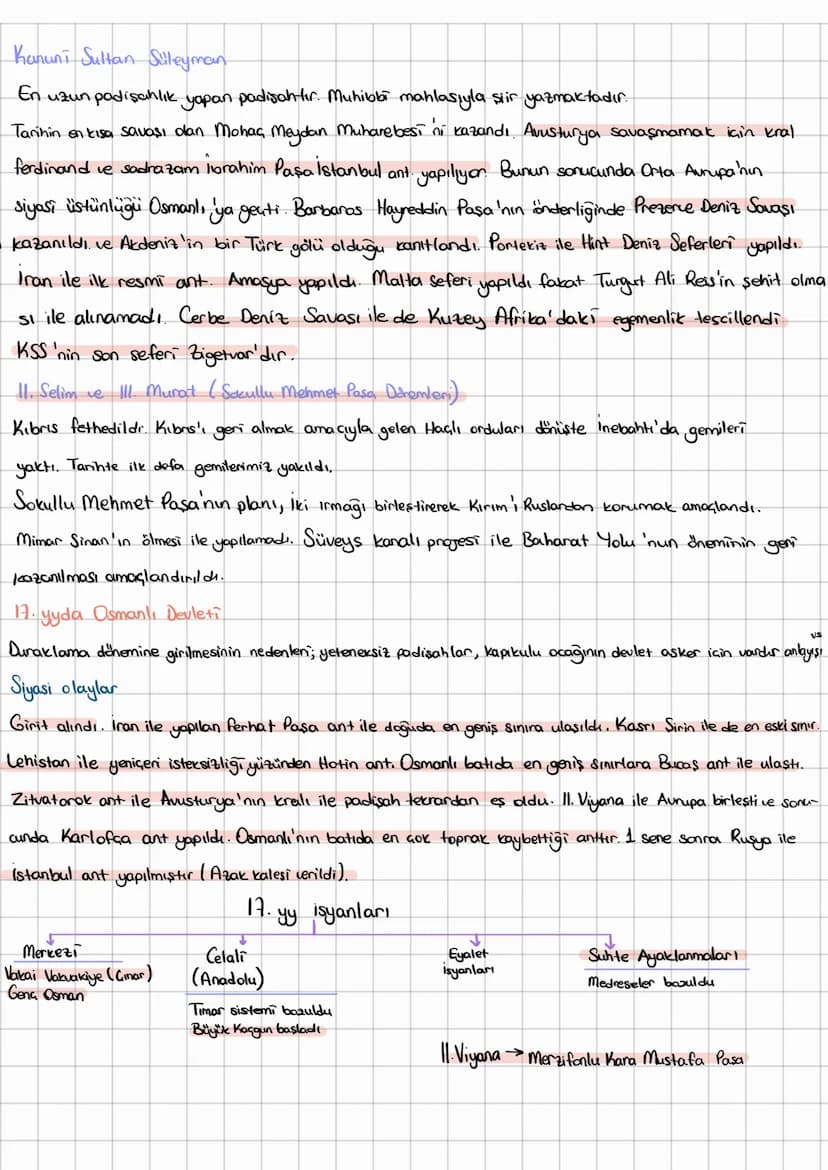 Kanunī Sultan Süleyman
En uzun padişahlık yapan padişahtır. Muhibbī mahlasıyla şiir yazmaktadır.
Tarihin en kısa savaşı olan Mohaç Meydan Muharebesi'ni kazandı. Avusturya savaşmamak için kral
ferdinand ve sadrazam İbrahim Paşa İstanbul ant. yapılıyor. Bunun sonucunda Orta Avrupa'nın
siyasi üstünlüğü Osmanlı'ya geçti. Barbaros Hayreddin Paşa'nın önderliğinde Preveze Deniz Savaşı
kazanıldı ve Akdeniz'in bir Türk gölü olduğu kanıtlandı. Portekiz ile Hint Deniz Seferleri yapıldı.
İran ile ilk resmi ant. Amasya yapıldı. Malta seferi yapıldı fakat Turgut Ali Reis'in şehit olma
sı ile alınamadı. Cerbe Deniz Savaşı ile de Kuzey Afrika'daki egemenlik tescillendi
KSS'nin son seferi Zigetvar'dır.
II. Selim ve III. Murat (Sokullu Mehmet Paşa Dönemleri)
Kıbrıs fethedildi. Kıbrıs'ı geri almak amacıyla gelen Haçlı orduları dönüşte İnebahtı'da gemileri
yaktı. Tarihte ilk defa gemilerimiz yakıldı.
Sokullu Mehmet Paşa'nın planı, iki ırmağı birleştirerek Kırım'ı Ruslardan korumak amaçlandı.
Mimar Sinan'ın ölmesi ile yapılamadı. Süveyş kanalı projesi ile Baharat Yolu'nun öneminin geri
kazanılması amaçlandırıldı.
17. yyda Osmanlı Devleti
Duraklama dönemine girilmesinin nedenleri; yeteneksiz padişahlar, kapıkulu ocağının devlet asker için vardır anlayışı vs
Siyasi olaylar
Girit alındı. İran ile yapılan Ferhat Paşa ant ile doğuda en geniş sınıra ulaşıldı. Kasrı Şirin ile de en eski sınır.
Lehistan ile yeniçeri isteksizliği yüzünden Hotin ant. Osmanlı batıda en geniş sınırlara Bucaş ant ile ulaştı.
Zitvatorok ant ile Avusturya'nın kralı ile padişah tekrardan eş oldu. II. Viyana ile Avrupa birleşti ve sonu-
cunda Karlofça ant yapıldı. Osmanlı'nın batıda en çok toprak kaybettiği anttır. 1 sene sonra Rusya ile
İstanbul ant yapılmıştır (Azak kalesi verildi).
17. yy isyanları
Merkezi
Vakai Vakvakiye (Çınar)
Genç Osman
Celali
(Anadolu)
Tımar sistemi bozuldu
Büyük Kaçgun başladı
Eyalet
isyanları
Suhte Ayaklanmaları
Medreseler bozuldu
II. Viyana → Merzifonlu Kara Mustafa Paşa